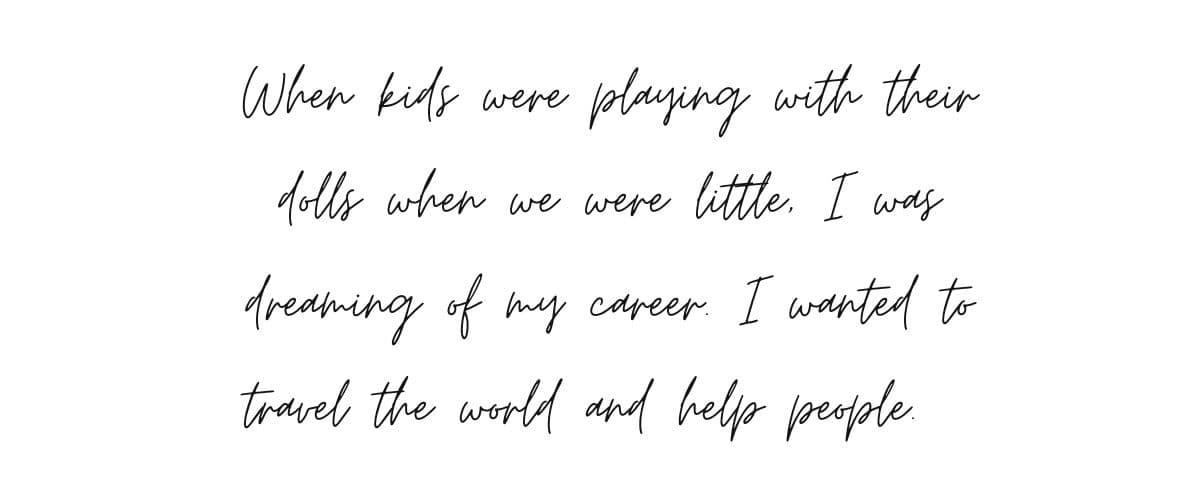 When kids were playing with their
dolls when we were little, I was
dreaming of my career. I wanted to
travel the world and help people.